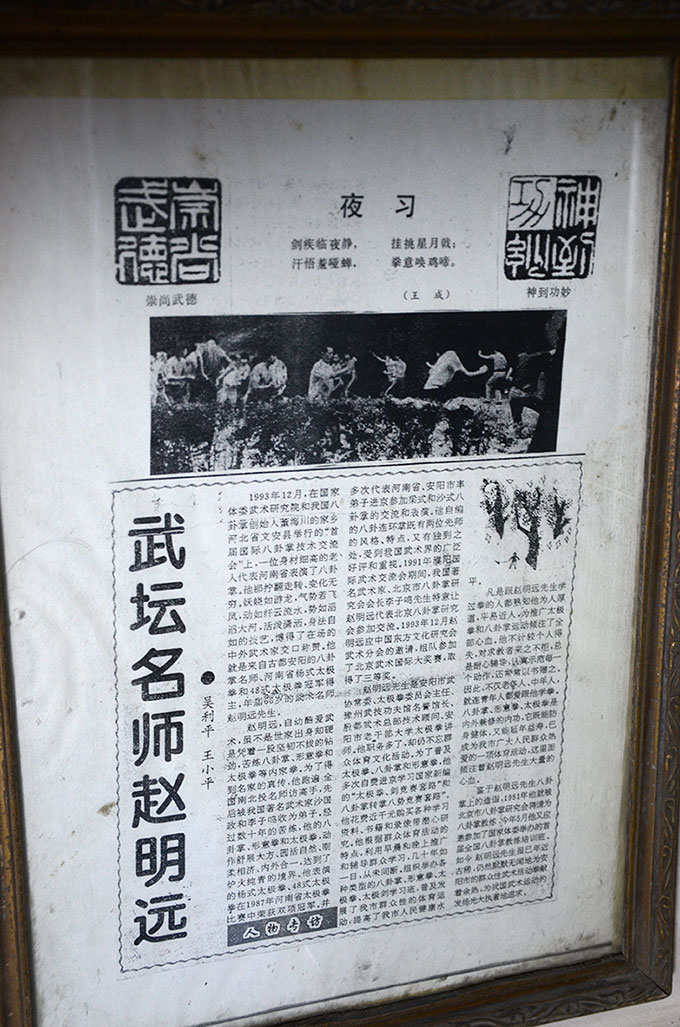 夜习
剑疾临夜静，　挂挑星月戟；
汗悟羞哑蝉，　拳意唤鸡啼。
（王成）
崇尚武德
崇尚武德
神到功妙
神到功妙
武坛名师赵明远
●吴利平　王小平
1993年12月，在国家
体委武术研究院和我国八
卦掌创始人董海川的家乡
河北省文安县举行的“首
届国际八卦掌技术交流
会”上，一位身材细高的老
人代表河南省表演了八卦
掌。他那拧翻走转、变化无
穷，妖娆如游龙，气势若飞
凤，动如行云流水，势如滔
滔大河，活泼潇洒，身法自
如的技艺，博得了在场的
中外武术家交口称赞。他
就是来自古都安阳的八卦
掌名师、河南省杨式太极
拳和48式太极拳冠军得
主，年届68岁的武术名师
赵明远先生。
赵明远，自幼酷爱武
术，虽不是世家出身却硬
是凭着一股坚韧不拔的钻
劲，苦练八卦掌、形意拳和
太极拳等内家拳。为了得
到名家的真传，他跑遍全
国南北投名师访高手，先
后被我国著名武术家沙国
政和李子鸣收为弟子，经
过数十年的苦练，他的八
卦掌、形意拳和太极拳，动
作舒展大方、园活自然、刚
柔相济、内外合一，达到了
炉火纯青的境界。他表演
的杨式太极拳、48式太极
拳在1987年河南省太极拳
比赛中荣获双项冠军，并
多次代表河南省、安阳市率
弟子进京参加梁式和沙式八
卦掌的交流和表演，他自编
的八卦连环掌既有两位先师
的风格、特点，又有独到之
处，受到我国武术界的广泛
好评和重视。1991年濮阳国
际武术交流会期间，我国著
名武术家、北京市八卦掌研
究会会长李子鸣先生特意让
赵明远代表北京八卦掌研究
会参加交流。1993年12月赵
明远应中国东方文化研究会
武术分会的邀请，组队参加
了北京武术国际大奖赛，取
得了三等奖。
赵明远先生是安阳市武
协常委、太极拳委员会主任、
豫州武技功夫馆名誉馆长、
殷都武术总部技术顾问、安
阳市老干部大学太极拳讲
师。他职务多了，却仍不忘群
众体育文化活动，为了普及
太极拳、八卦掌和形意拳，他
多次自费进京学习国家新编
的“太极拳、剑竞赛套路”和
八卦掌转掌八势竞赛套路”，
他花费近千元购买各种学习
资料、书籍和录像带潜心研
究。他根据群众体育活动的
特点，利用早晨和晚上推广
和辅导群众学习，几十年如
一日，从未间断。组织举办各
种类型的八卦掌、形意拳、太
极拳、太极剑学习班，普及发
展了我市群众性的体育运
动，提高了我市人民健康水
平。
凡是跟赵明远先生学
过拳的人都熟知他为人厚
道，平易近人，为推广太极
拳和八卦掌运动倾注了全
部心血。他不计较个人得
失，对求教者来之不拒，总
是耐心辅导，认真示范每一
个动作，还常常以书赠之。
因此，不仅老年人、中年人，
就连青年人都爱跟他学拳。
八卦掌、形意拳、太极拳是
内外兼修的内功，它既能防
身健体，又能延年益寿，已
成为我市广大人民群众热
爱的一项体育活动，这里面
倾注着赵明远先生大量的
心血。
鉴于赵明远先生八卦
掌上的造诣，1981年他就被
北京市八卦掌研究会聘请为
八卦掌教练，今年5月他又应
邀参加了国家体委举办的首
届全国八卦掌教练培训班。
如今赵明远先生虽已年近
古稀，仍然默默无闻地为安
阳市的群众性武术活动奉献
着余热，为民国武术运动的
发扬光大执著地追求。
人物专访